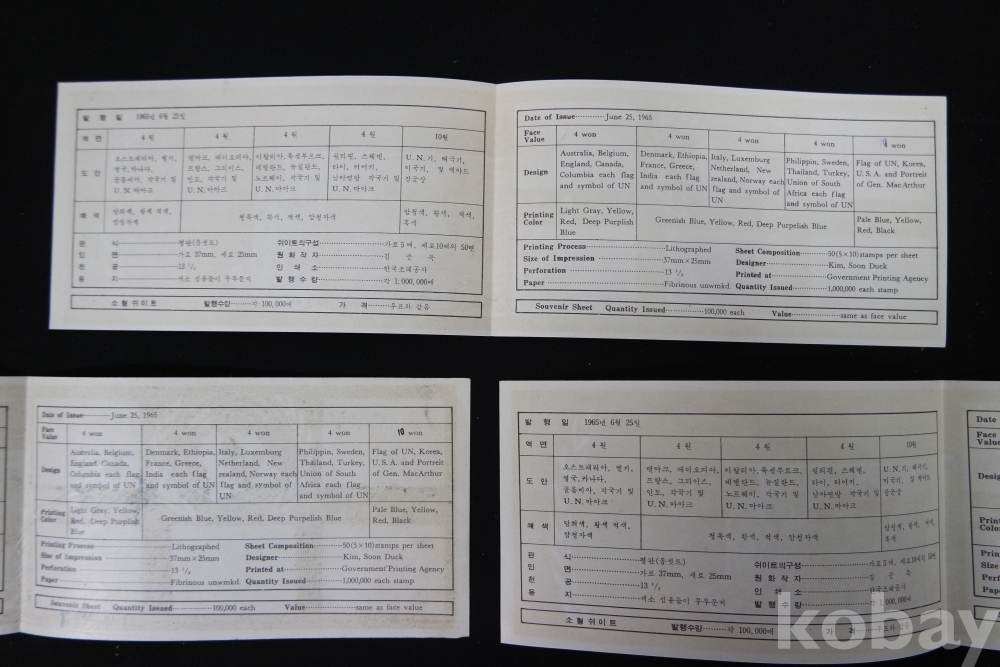 발 행 일 1965년 6월 25일
액 면 4 원 4 원 4 원 4 원 10원
도 안
오스트레리아, 벨기, 덴마크, 에티오피아, 이탈리아, 룩셍부르크, 필리핀, 스웨덴, U.N.기, 태극기,
영국, 카나다, 프랑스, 그리이스, 네델란드, 뉴질란드, 타이, 터어키, 미국기, 및 맥아드
콜롬비아, 각국기 및 인도, 각국기 및 노르웨이, 각국기 및 남아연방 각국기 및 장군상
U.N.마아크 U.N.마아크 U.N.마아크 U.N.마아크
쇄 색 암회색, 황색 적색, 청록색, 황색, 적색, 암청자색 암청색, 황색, 적색,
암청자색 흑색
판 식 평판(옵셋트) 쉬이트의구성 가로5매, 세로10매의 50면
인 면 가로 37mm, 세로 25mm 원 화 작 자
천 공 13 ½ 인 쇄 소 한국조폐공사
용 지 색소 섬유들이 무투문지 발 행 수 량 각 1,000,000매
소 형 쉬 이 트 발행수량 각 100,000매 가 격 우표와 같음
Date of Issue June 25, 1965
Face Value 4 won 4 won 4 won 4 won 10 won
Design
Australia, Belgium, Denmark, Ethiopia, Italy, Luxemburg Philippin, Sweden, Flag of UN, Korea,
England, Canada, France, Greece, Netherland, New Thailand, Turkey, U.S.A. and Portreit
Columbia each flag India each flag zealand, Norway each Union of South of Gen. MacArthur
and symbol of UN and symbol of UN flag and symbol of Africa each flag
UN and symbol of UN
Printing Color Light Gray, Yellow, Greenish Blue, Yellow, Red, Deep Purpelish Blue Pale Blue, Yellow,
Red, Deep Purplish Red, Black
Blue
Printing Process Lithographed Sheet Composition 50(5×10)stamps per sheet
Size of Impression 37mm×25mm Designer Kim, Soon Duck
Perforation 13 ½ Printed at Government Printing Agency
Paper Fibrinous unwmkd. Quantity Issued 1,000,000 each stamp
Souvenir Sheet Quantity Issued 100,000 each Value same as face value
Date of Issue June 25, 1965
Face Value 4 won 4 won 4 won 4 won 10 won
Design
Australia, Belgium, Denmark, Ethiopia, Italy, Luxemburg Philippin, Sweden, Flag of UN, Korea,
England, Canada, France, Greece, Netherland, New Thailand, Turkey, U.S.A. and Portreit
Columbia each flag India each flag zealand, Norway each Union of South of Gen. MacArthur
and symbol of UN and symbol of UN flag and symbol of Africa each flag
UN and symbol of UN
Printing Color Light Gray, Yellow, Greenish Blue, Yellow, Red, Deep Purpelish Blue Pale Blue, Yellow,
Red, Deep Purplish Red, Black
Blue
Printing Process Lithographed Sheet Composition 50(5×10)stamps per sheet
Size of Impression 37mm×25mm Designer Kim, Soon Duck
Perforation 13 ½ Printed at Government Printing Agency
Paper Fibrinous unwmkd. Quantity Issued 1,000,000 each stamp
Souvenir Sheet Quantity Issued 100,000 each Value same as face value
발 행 일 1965년 6월 25일
액 면 4 원 4 원 4 원 4 원 10원
도 안
오스트레리아, 벨기, 덴마크, 에티오피아, 이탈리아, 룩셍부르크, 필리핀, 스웨덴, U.N.기, 태극기,
영국, 카나다, 프랑스, 그리이스, 네델란드, 뉴질란드, 타이, 터어키, 미국기, 및 맥아드
콜롬비아, 각국기 및 인도, 각국기 및 노르웨이, 각국기 및 남아연방 각국기 및 장군상
U.N.마아크 U.N.마아크 U.N.마아크 U.N.마아크
쇄 색 암회색, 황색 적색, 청록색, 황색, 적색, 암청자색 암청색, 황색, 적색,
암청자색 흑색
판 식 평판(옵셋트) 쉬이트의구성 가로5매, 세로10매의 50면
인 면 가로 37mm, 세로 25mm 원 화 작 자
천 공 13 ½ 인 쇄 소 한국조폐공사
용 지 색소 섬유들이 무투문지 발 행 수 량 각 1,000,000매
소 형 쉬 이 트 발행수량 각 100,000매 가 격 우표와 같음
Date
Face
Value
Desig
Print
Color
Print
Size
Perf
Pape
kobay